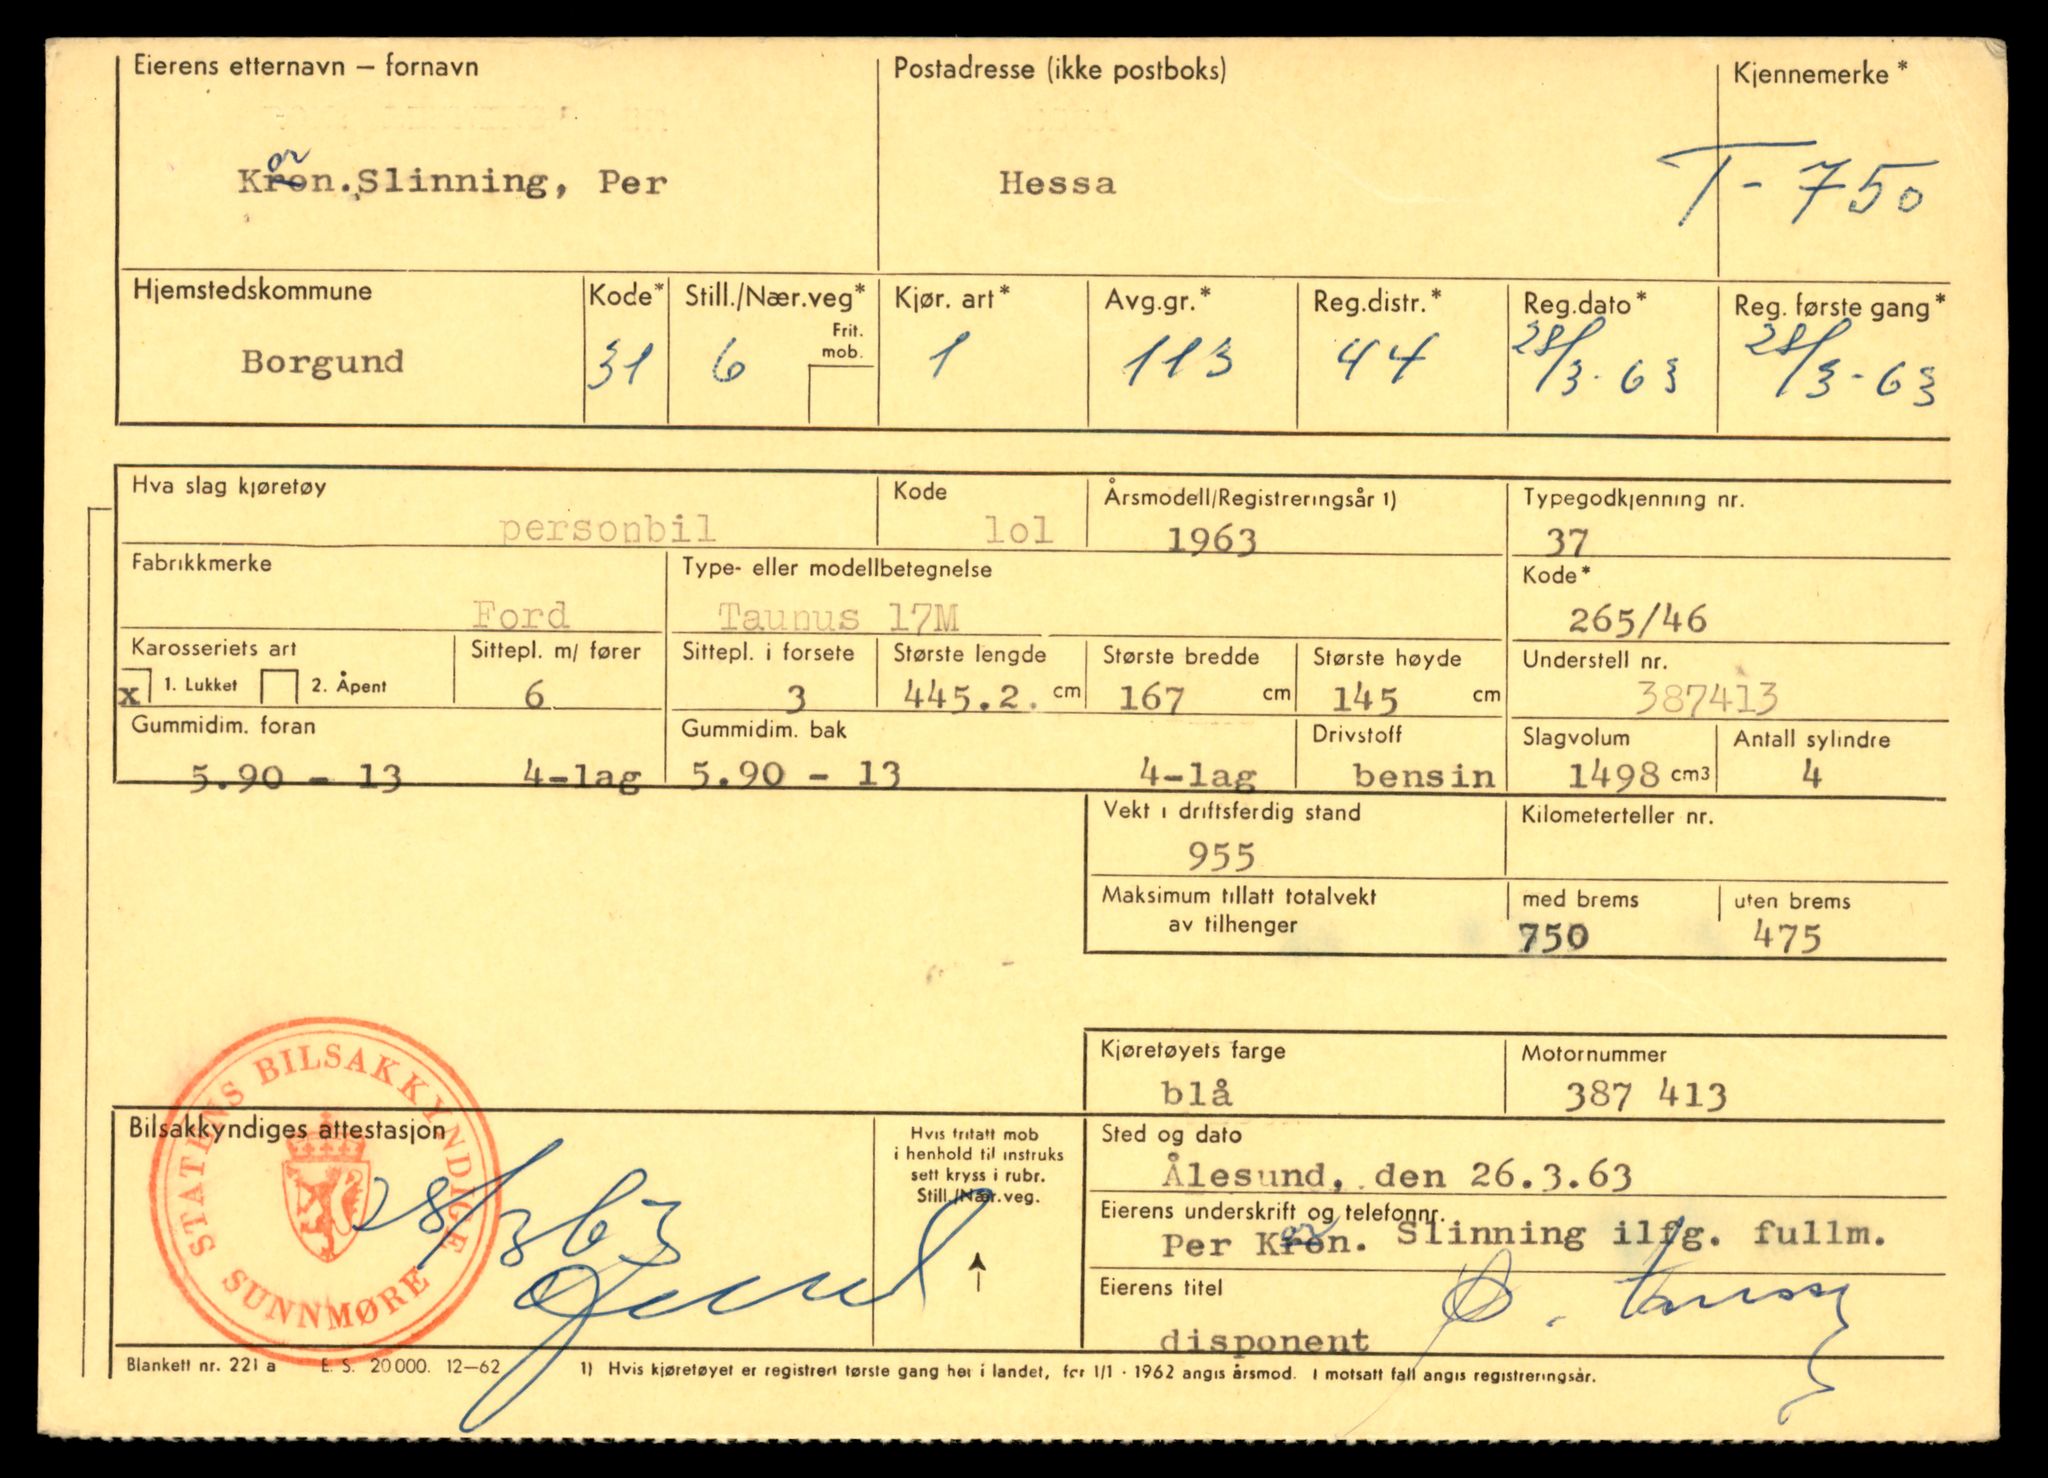 Eierens etternavn – fornavn
Postadresse (ikke postboks)
Kjennemerke*
or
Kron. Slinning, Per
Hessa
T-750
Hjemstedskommune
Kode*
Still./Nær.veg*
Frit. mob.
Kjør. art*
Avg.gr.*
Reg.distr.*
Reg.dato*
Reg. første gang*
Borgund
31
6
1
113
44
28/3-63
28/3-63
Hva slag kjøretøy
personbil
Kode
lol
Årsmodell/Registreringsår 1)
1963
Typegodkjenning nr.
37
Fabrikkmerke
Ford
Type- eller modellbetegnelse
Taunus 17M
Kode*
265/46
Karosseriets art
x 1. Lukket 2. Åpent
Sittepl. m/ fører
6
Sittepl. i forsete
3
Største lengde
445.2. cm
Største bredde
167 cm
Største høyde
145 cm
Understell nr.
387413
Gummidim. foran
5.90 - 13 4-lag
Gummidim. bak
5.90 - 13 4-lag
Drivstoff
bensin
Slagvolum
1498 cm3
Antall sylindre
4
Vekt i driftsferdig stand
955
Kilometerteller nr.
Maksimum tillatt totalvekt
av tilhenger
med brems
750
uten brems
475
Kjøretøyets farge
blå
Motornummer
387 413
STATENS BILSAKKYNDIGE
SUNNMØRE
Bilsakkyndiges attestasjon
28/3 63
Hvis fritatt mob
i henhold til instruks
sett kryss i rubr.
Still./Nær.veg.
Sted og dato
Ålesund, den 26.3.63
Eierens underskrift og telefonnr.
or
Per Kron. Slinning ilfg. fullm.
Eierens titel
disponent
Blankett nr. 221 a E. S. 20000. 12–62 1) Hvis kjøretøyet er registrert første gang her i landet, før 1/1 - 1962 angis årsmod. I motsatt fall angis registreringsår.